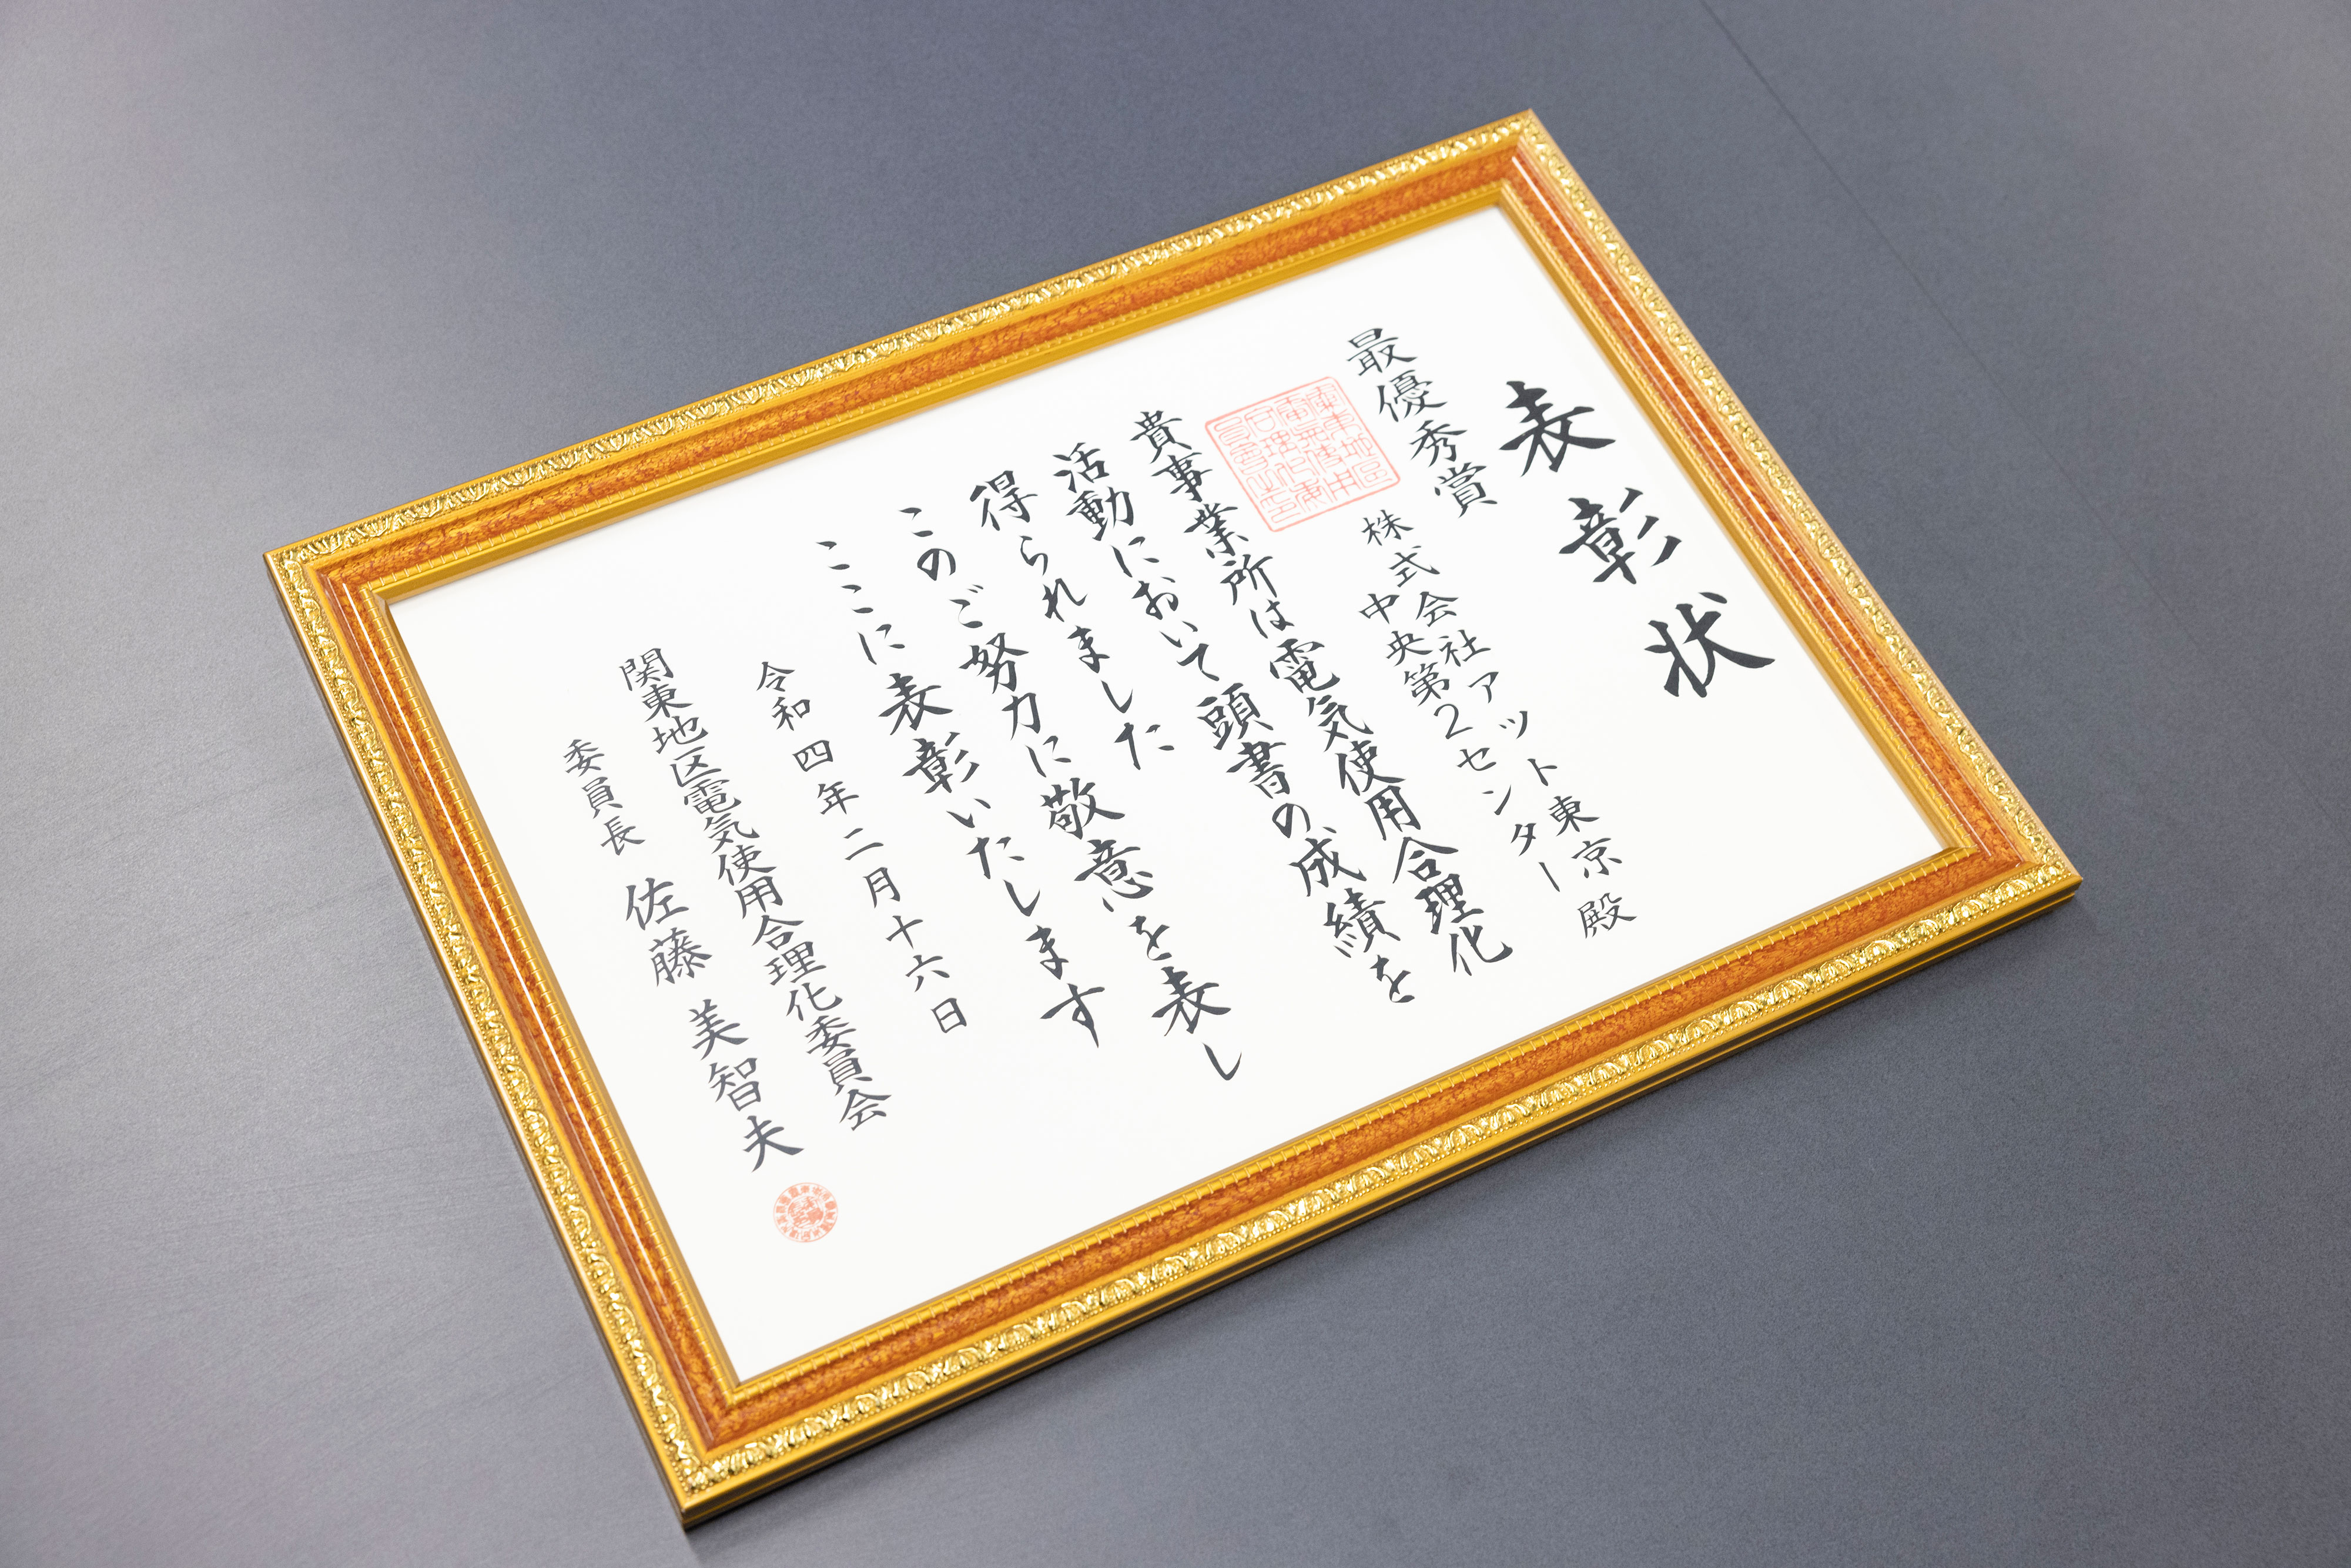 表彰状
最優秀賞
株式会社アット東京殿
中央第2センター
貴事業所は電気使用合理化
活動において頭書の成績を
得られました
このご努力に敬意を表し
ここに表彰いたします
令和四年二月十六日
関東地区電気使用合理化委員会
委員長 佐藤 美智夫